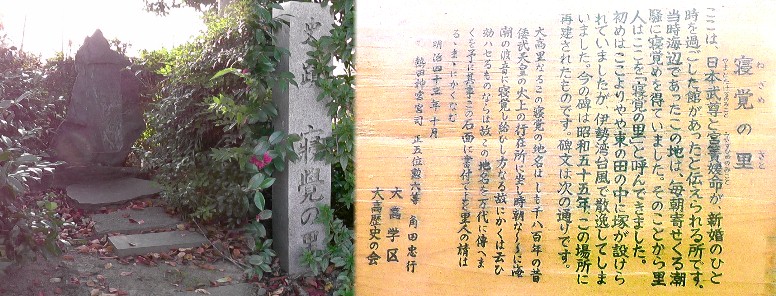 史跡 寝覚の里
寝覚の里
ねざめ さと
ここは、日本武尊と宮簀媛命が、新婚のひと
時を過ごした館があったと伝えられる所です。
当時海辺であったこの地は、毎朝寄せくる潮
騒に寝覚めを得ていました。そのことから里
人はここを「寝覚の里」と呼んできました。
初めはここよりやや東の田の中に塚が設けら
れていましたが、伊勢湾台風で散逸してしま
いました。今の碑は昭和五十五年この場所に
再建されたものです。碑文は次の通りです。
大高里なるこの寝覚の地名はしも千八百年の昔
倭武天皇の火上の行在所に坐し時朝な〱に海
潮の波音に寝覚し給ひし方なる故にかくは云ひ
明治四十三年十月
熱田神宮宮司 正五位勲六等 角田忠行
大高学区
大高歴史の会